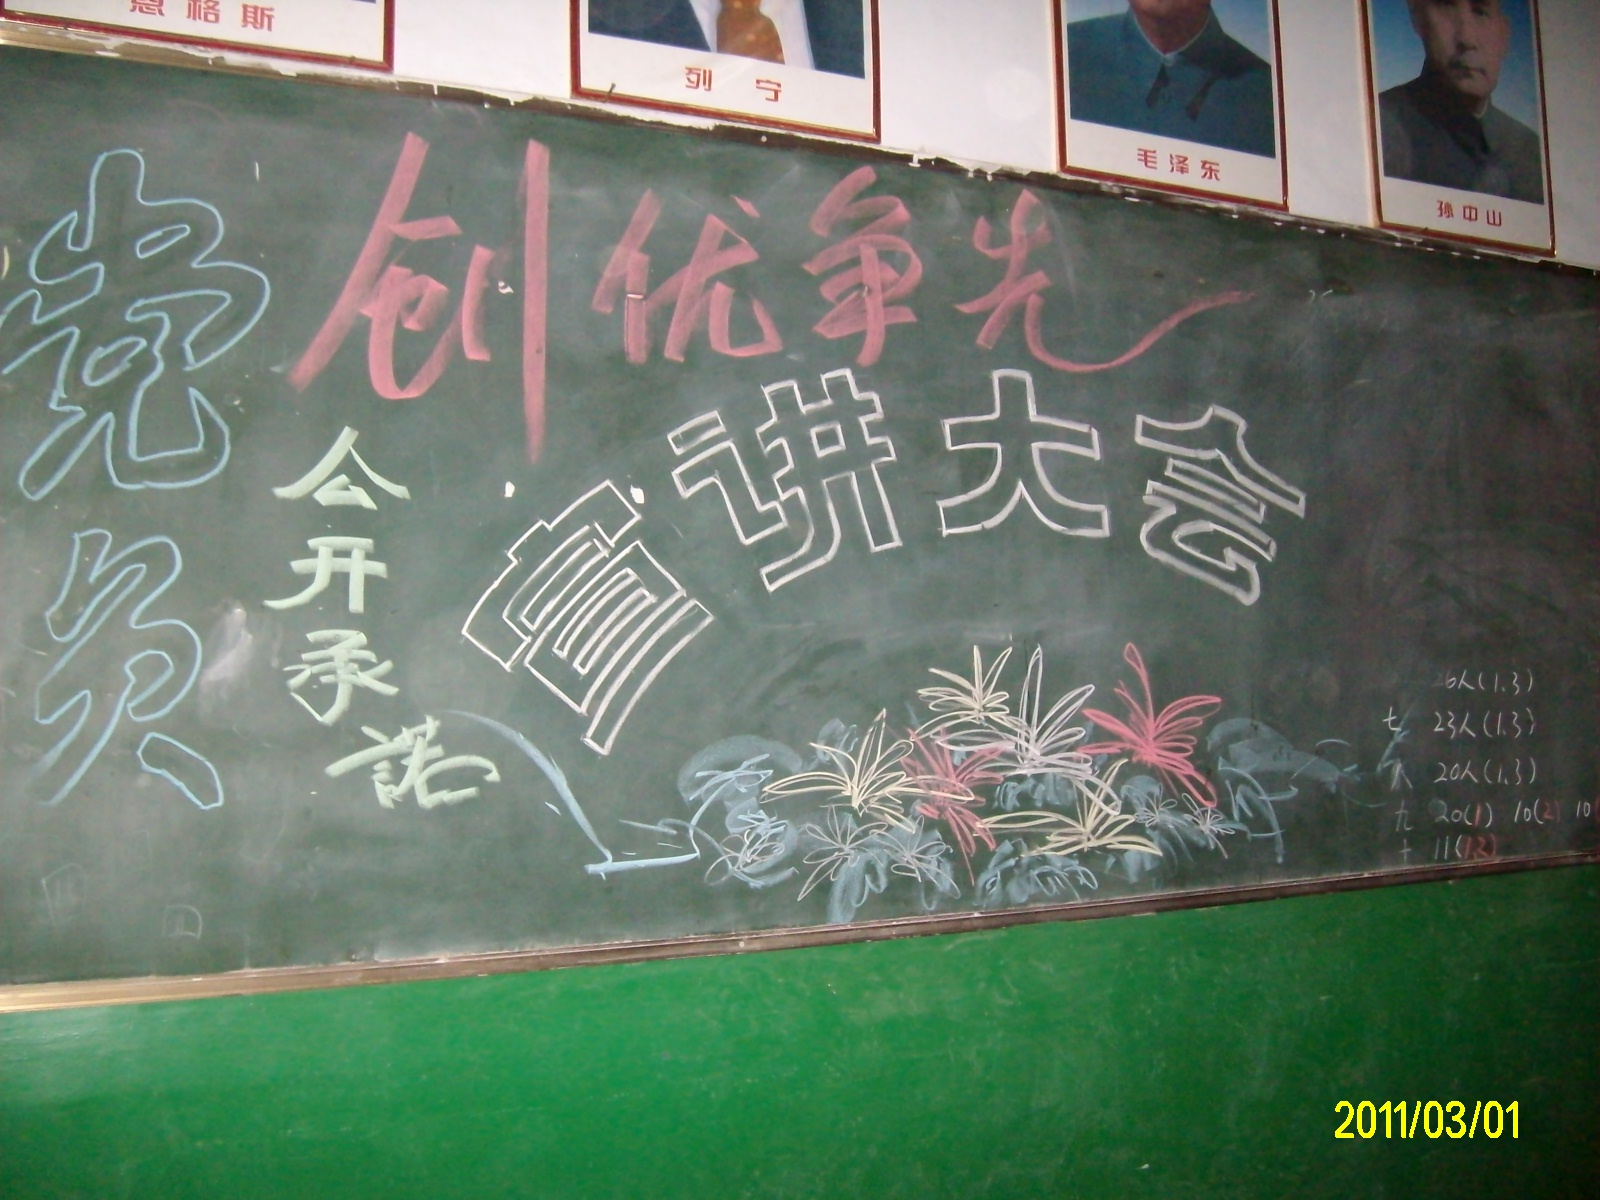 恩格斯
列宁
毛泽东
孙中山
党员
创优争先
公开承諾
宣讲大会
26人(1.3)
七 23人(1.3)
八 20人(1.3)
九 20(1) 10(2) 10
十 11(1.2)
2011/03/01